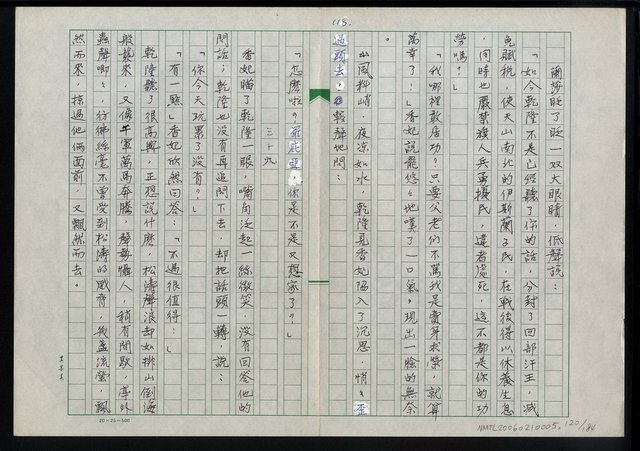 118.
蘭莎眨了眨一双大眼睛,低聲說:
「如今乾隆不是已經聽了你的話,分封了回部汗王,減
免賦稅,使天山南北的伊斯蘭子民,在戰後得以休養生息
,同時也嚴禁旗人兵勇擾民,違者處死,這不都是你的功
勞嗎?」
「我哪裡敢居功?只要父老们不罵我是賣身求榮,就算
萬幸了!」香妃說罷悠々地嘆了一口氣。現出一臉的無奈
。
山風料峭,夜凉如水,乾隆見香妃陷入了沉思,悄々歪
過頭去,輕聲地問:
「怎麼啦?是不是又想家了?」
三十九
香妃瞄了乾隆一眼,嘴角泛起一絲微笑,沒有回答他的
問話;乾隆也沒有再追問下去,却把話頭一轉,說:
「你今天玩累了沒有?」
「有一點」香妃欣然回答:「不過很值得!」
乾隆聽了很高興,正想說什麼,松濤聲浪却如排山倒海
般襲來,又像千軍萬馬奔騰,聲勢懾人,稍有間歇,亭外
蟲聲唧々,彷彿絲毫不曾受到松濤的威脅,幾盞流螢,飄
然而來,掠過他倆面前,又飄然而去。
20×25=500
NMTL20060210005.120/186